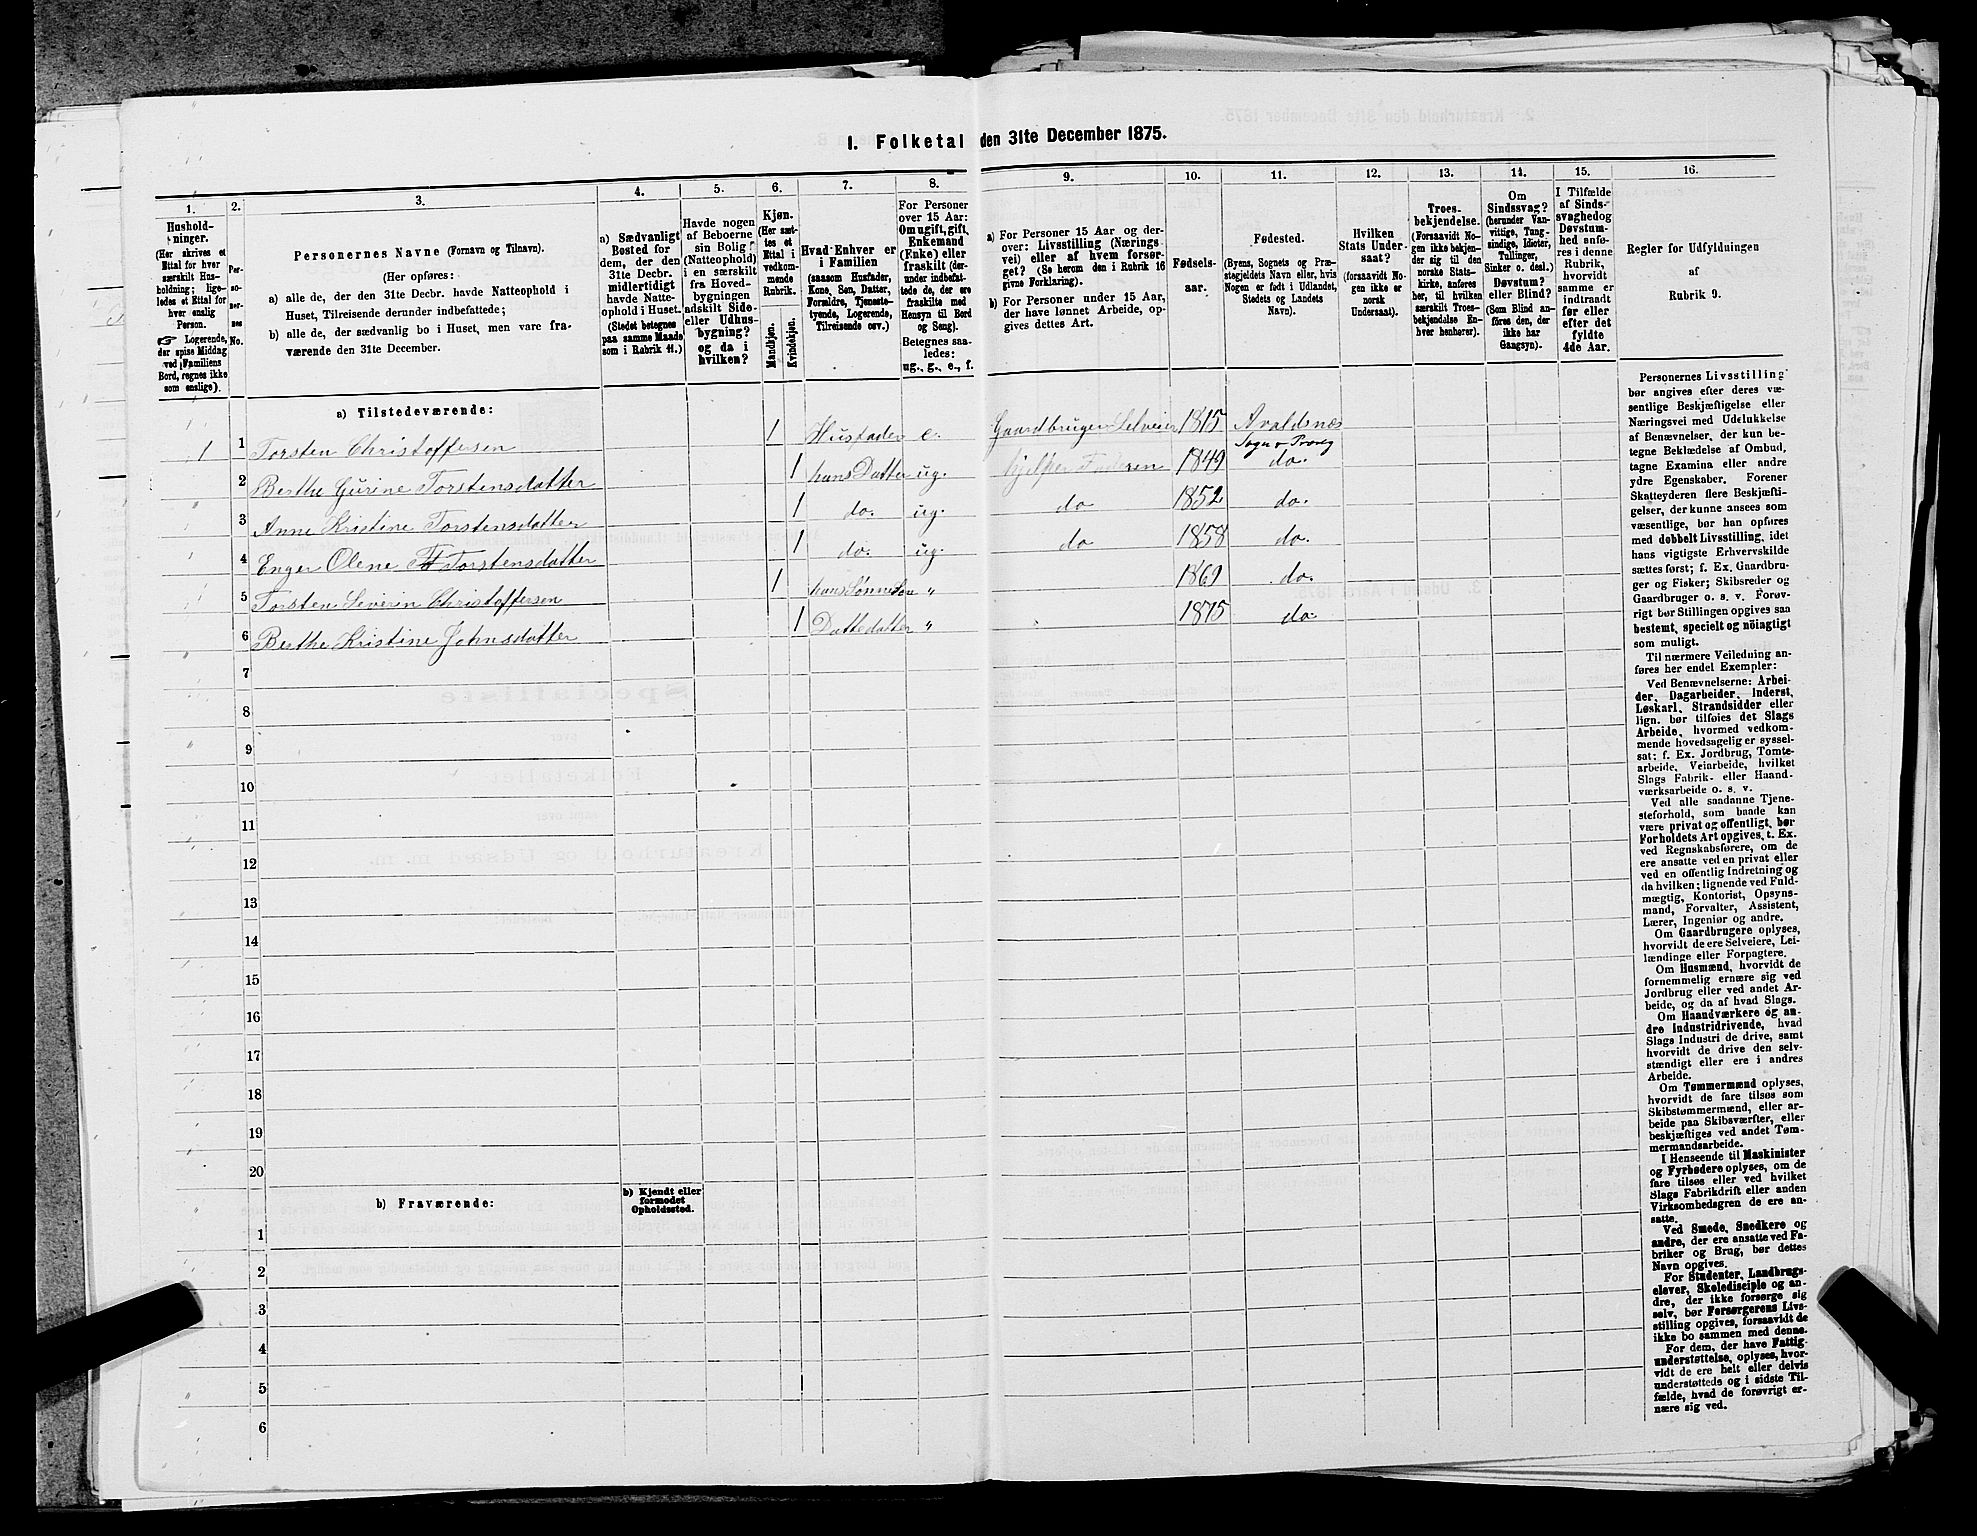 I. Folketal den 31te December 1875.
1.
Hushold-
ninger.
(Her skrives et
Ettal for hver
særskilt Hus-
holdning; lige-
ledes et Ettal for
hver enslig
Person.
☞ Logerende,
der spise Middag
ved Familiens
Bord, regnes ikke
som enslige).
2.
Per-
so-
ner-
nes
No.
3.
Personernes Navne (Fornavn og Tilnavn).
(Her opføres:
a) alle de, der den 31te Decbr. havde Natteophold i
Huset, Tilreisende derunder indbefattede;
b) alle de, der sædvanlig bo i Huset, men vare fra-
værende den 31te December.
4.
a) Sædvanligt
Bosted for
dem, der den
31te Decbr.
midlertidigt
havde Natte-
ophold i Huset.
(Stedet betegnes
paa samme Maade
som i Rubrik 11.)
5.
Havde nogen
af Beboerne
sin Bolig
(Natteophold)
i en særskilt
fra Hoved-
bygningen
adskilt Side-
eller Udhus-
bygning?
og da i
hvilken?
6.
Kjøn.
(Her sæt-
tes et
Ettal i
vedkom-
mende
Rubrik.
Mandkjøn.
Kvindekjøn.
7.
Hvad Enhver er
i Familien
(saasom Husfader,
Kone, Søn, Datter,
Forældre, Tjeneste-
tyende, Logerende,
Tilreisende osv.)
8.
For Personer
over 15 Aar:
Om ugift, gift,
Enkemand
(Enke) eller
fraskilt (der-
under indbefat-
tede de, der ere
fraskilte med
Hensyn til Bord
og Seng).
Betegnes saa-
ledes:
ug., g., e., f.
9.
a) For Personer 15 Aar og der-
over: Livsstilling (Nærings-
vei) eller af hvem forsør-
get? (Se herom den i Rubrik 16
givne Forklaring).
b) For Personer under 15 Aar,
der have lønnet Arbeide, op-
gives dettes Art.
10.
Fødsels-
aar.
11.
Fødested.
(Byens, Sognets og Præ-
stegjeldets Navn eller, hvis
Nogen er født i Udlandet,
Stedets og Landets
Navn).
12.
Hvilken
Stats Under-
saat?
(forsaavidt No-
gen ikke er
norsk
Undersaat).
13.
Troes-
bekjendelse.
(Forsaavidt No-
gen ikke bekjen-
der sig til den
norske Stats-
kirke, anføres
her, til hvilken
særskilt Troes-
bekjendelse En-
hver henhører).
14.
Om
Sindssvag?
(herunder Van-
vittige, Tung-
sindige, Idioter,
Tullinger,
Sinker o. desl.)
Døvstum?
eller Blind?
(Som Blind an-
føres den, der
ikke har
Gangsyn).
15.
I Tilfælde
af Sinds-
svaghed og
Døvstum-
hed anfø-
res i denne
Rubrik,
hvorvidt
samme er
indtraadt
før eller
efter det
fyldte
4de Aar.
16.
Regler for Udfyldningen
af
Rubrik 9.
a) Tilstedeværende:
1 1 Torsten Christoffersen 1 Husfader e. Gaardbruger Selveier 1815 Avaldsnæs
Sogn &
2 Berthe Gurine Torstensdatter 1 hans Datter ug. hjelper Faderen 1849 do.
3 Anne Kristine Torstensdatter 1 do. ug. do 1852 do.
4 Enger Olene Torstensdatter 1 do. ug. do 1858 do.
5 Torsten Severin Christoffersen 1 hans Sønneson " 1869 do.
6 Berthe Kristine Johnsdatter 1 Dattedatter " 1875 do
7
8
9
10
11
12
13
14
15
16
17
18
19
20
b) Fraværende:
b) Kjendt eller
formodet
Opholdssted.
1
2
3
4
5
6
Personernes Livsstilling
bør angives efter deres væ-
sentlige Beskjæftigelse eller
Næringsvei med Udelukkelse
af Benævnelser, der kun be-
tegne Beklædelse af Ombud,
tagne Examina eller andre
ydre Egenskaber. Forener
Skatteyderen flere Beskjæfti-
gelser, der kunne ansees som
væsentlige, bør han opføres
med dobbelt Livsstilling, idet
hans vigtigste Erhvervskilde
sættes først; f. Ex. Gaardbru-
ger og Fisker; Skibsreder og
Gaardbruger o. s. v. Forøv-
rigt bør Stillingen opgives saa
bestemt, specielt og nöiagtigt
som muligt.
Til nærmere Veiledning an-
føres her endel Exempler:
Ved Benævnelserne: Arbei-
der, Dagarbeider, Inderst,
Løskarl, Strandsidder eller
lign. bør tilføies det Slags
Arbeide, hvormed vedkom-
mende hovedsagelig er syssel-
sat; f. Ex. Jordbrug, Tomte-
arbeide, Veiarbeide, hvilket
Slags Fabrik- eller Haand-
værksarbeide o. s. v.
Ved alle saadanne Tjene-
steforhold, som baade kan
være privat og offentligt, bør
Forholdets Art opgives, t. Ex.
ved Regnskabsførere, om de
ere ansatte ved en privat eller
ved en offentlig Indretning og
da hvilken; lignende ved Fuld-
mægtig, Kontorist, Opsyns-
mand, Forvalter, Assistent,
Lærer, Ingeniør og andre.
Om Gaardbrugere oplyses,
hvorvidt de ere Selveiere, Lei-
lændinge eller Forpagtere.
Om Husmænd, hvorvidt de
fornemmelig ernære sig ved
Jordbrug eller ved andet Ar-
beide, og da af hvad Slags.
Om Haandværkere og an-
dre Industridrivende, hvad
Slags Industri de drive, samt
hvorvidt de drive den selv-
stændigt eller ere i andres
Arbeide.
Om Tømmermænd oplyses,
hvorvidt de fare tilsøs som
Skibstømmermænd, eller ar-
beide paa Skibsværfter, eller
beskjæftiges ved andet Tøm-
mermandsarbeide.
I Henseende til Maskinister
og Fyrbødere oplyses, om de
fare tilsøs eller ved hvilket
Slags Fabrikdrift eller anden
Virksomhedsgren de ere an-
satte.
Ved Smede, Snedkere og
andre, der ere ansatte ved Fa-
briker og Brug, bør dettes
Navn opgives.
For Studenter, Landbrugs-
elever, Skoledisciple og an-
dre, der ikke forsørge sig
selv, bør Forsørgerens Livs-
stilling opgives, forsaavidt de
ikke bo sammen med denne.
For dem, der have Fattig-
understøttelse, oplyses, hvor-
vidt de ere helt eller delvis
understøttede og i sidste Til-
fælde, hvad de forøvrigt er-
nære sig ved.